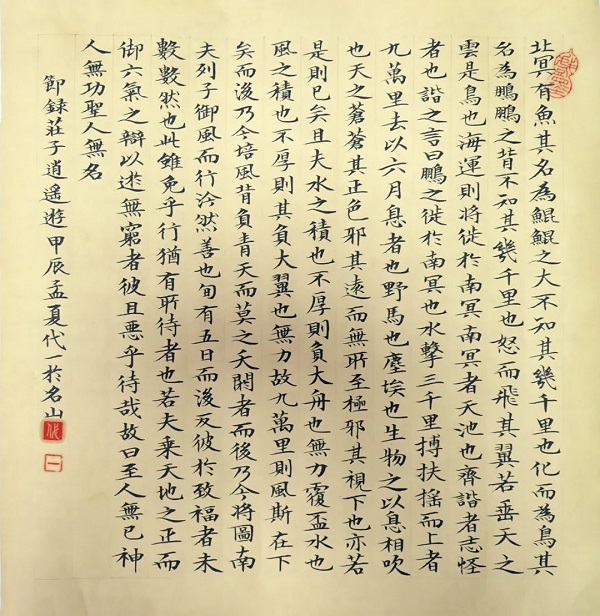 北冥有魚其名為鯤鯤之大不知其幾千里也化而為鳥其
名為鵬鵬之背不知其幾千里也怒而飛其翼若垂天之
雲是鳥也海運則將徙於南冥南冥者天池也齊諧者志怪
者也諧之言曰鵬之徙於南冥也水擊三千里摶扶搖而上者
九萬里去以六月息者也野馬也塵埃也生物之以息相吹
也天之蒼蒼其正色邪其遠而無所至極邪其視下也亦若
是則已矣且夫水之積也不厚則負大舟也無力覆盃水也
風之積也不厚則其負大翼也無力故九萬里則風斯在下
矣而後乃今培風背負青天而莫之夭閼者而後乃今將圖南
夫列子御風而行泠然善也旬有五日而後反彼於致福者未
數數然也此雖免乎行猶有所待者也若夫乘天地之正而
御六氣之辯以遊無窮者彼且惡乎待哉故曰至人無己神
人無功聖人無名
節錄莊子逍遙遊甲辰孟夏代一於名山
代
一